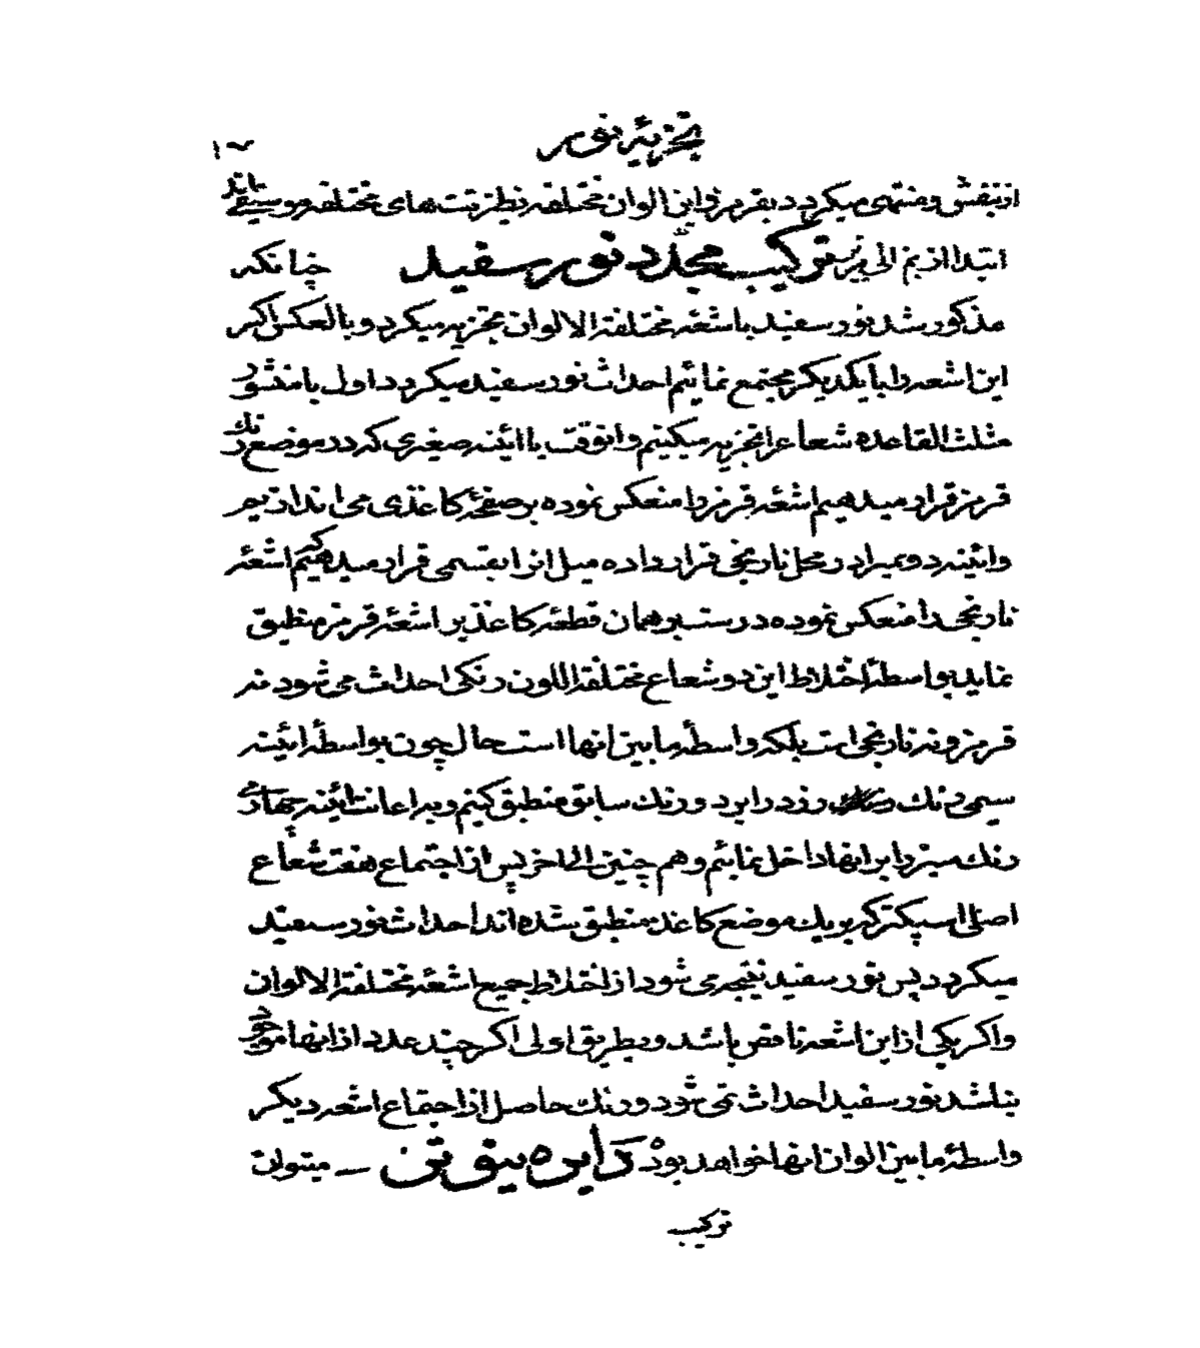 تجزیهٔ نور
از بنفش و منتهی میکردد بقرمز و این الوان مختلفه نظیر نت های مختلفه موسیقی
ابتدا از بم الی زیر ترکیب مجدّد نور سفید چنانکه
مذکور شد نور سفید باشعهٔ مختلفة الالوان تجزیه میکردد و بالعکس اکر
این اشعه را با یکدیکر مجتمع نمائیم احداث نور سفید میکردد اول با منشور
مثلث القاعده شعاع را تجزیه میکنیم و انوقت با ائینه صغیری که در موضع رنك
قرمز قرار میدهیم اشعهٔ قرمز را منعکس نموده بر صفحهٔ کاغذی می اندازیم
و ائینه دویم را در محل نارنجی قرار داده میل انرا بقسمی قرار میدهیم که اشعهٔ
نارنجی را منعکس نموده درست بر همان قطعهٔ کاغذ بر اشعهٔ قرمز منطبق
نماید بواسطهٔ اختلاط این دو شعاع مختلفة اللون رنکی احداث می شود نه
قرمز و نه نارنجی است بلکه واسطهٔ مابین انها است حال چون بواسطهٔ ائینه
سیمی رنك زرد را بر دو رنك سابق منطبق کنیم و به اعانت ائینه چهارمی
رنك سبز را بر انها داخل نمائیم و هم چنین الی اخر پس از اجتماع هفت شعاع
اصلی اسپکتر که بر یك موضع کاغذ منطبق شده اند احداث نور سفید
میکردد پس نور سفید نتیجه می شود از اختلاط جمیع اشعهٔ مختلفة الالوان
و اکر یکی از این اشعه ناقص باشد و بطریق اولی اکر چند عدد از انها موجود
نباشد نور سفید احداث نمی شود و رنك حاصل از اجتماع اشعه دیکر
واسطهٔ مابین الوان انها خواهد بود دایره نیوتن ـ میتوان
ترکیب